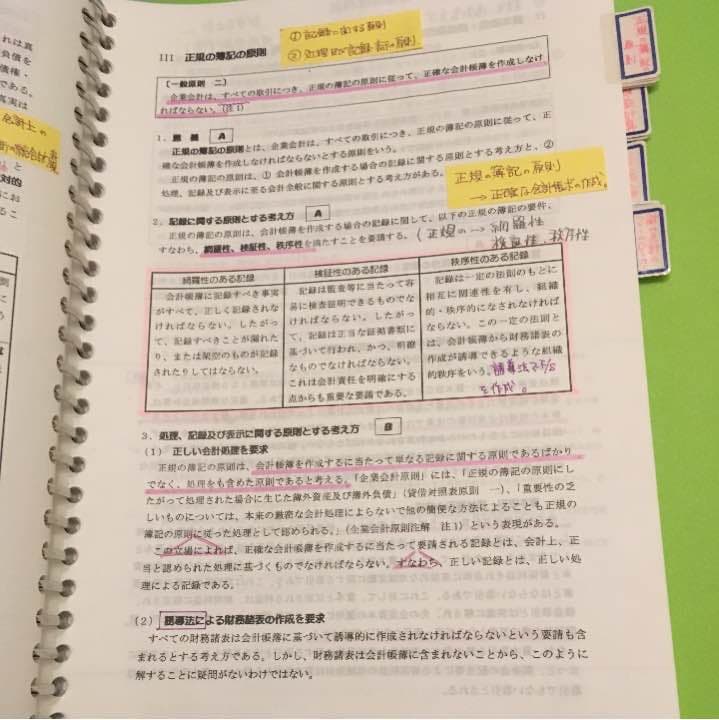 III 正規の簿記の原則
① 記録に関する原則
② 処理及び記録・表示の原則
正規の簿記
〔一般原則 二〕
企業会計は、すべての取引につき、正規の簿記の原則に従って、正確な会計帳簿を作成しなけ
ればならない。(注1)
1. 意義 A
正規の簿記の原則とは、企業会計は、すべての取引につき、正規の簿記の原則に従って、正
確な会計帳簿を作成しなければならないとする原則をいう。
正規の簿記の原則は、① 会計帳簿を作成する場合の記録に関する原則とする考え方と、②
処理、記録及び表示に至る会計全般に関する原則とする考え方がある。
正規の簿記の原則
→正確な会計帳簿の作成。
2. 記録に関する原則とする考え方 A
正規の簿記の原則は、会計帳簿を作成する場合の記録に関して、以下の正規の簿記の要件、
すなわち、網羅性、検証性、秩序性を満たすことを要請する。
(正規の→網羅性
検証性、秩序性
網羅性のある記録
会計帳簿に記録すべき事実
がすべて、正しく記録されな
ければならない。したがっ
て、記録すべきことが漏れた
り、または架空のものが記録
されたりしてはならない。
検証性のある記録
記録は監査等に当たって容
易に検査証明できるものでな
ければならない。したがっ
て、記録は正当な証拠書類に
基づいて行われ、かつ、明瞭
なものでなければならない。
これは会計責任を明確にする
点からも重要な要請である。
秩序性のある記録
記録は一定の法則のもとに
相互に関連性を有し、組織
的・秩序的になされなければ
ならない。この一定の法則と
は、会計帳簿から財務諸表の
作成が誘導できるような組織
的秩序をいう。
誘導法でF/S
を作成。
3. 処理、記録及び表示に関する原則とする考え方 B
(1) 正しい会計処理を要求
正規の簿記の原則は、会計帳簿を作成するに当たって単なる記録に関する原則であるばかり
でなく、処理をも含めた原則であると考える。「企業会計原則」には、「正規の簿記の原則にし
たがって処理された場合に生じた簿外資産及び簿外負債」(貸借対照表原則 一)、「重要性の乏
しいものについては、本来の厳密な会計処理によらないで他の簡便な方法によることも正規の
簿記の原則に従った処理として認められる。」(企業会計原則注解 注1)という表現がある。
この立場によれば、正確な会計帳簿を作成するに当たって要請される記録とは、会計上、正
当と認められた処理に基づくものでなければならない。すなわち、正しい記録とは、正しい処
理による記録である。
(2) 誘導法による財務諸表の作成を要求
すべての財務諸表は会計帳簿に基づいて誘導的に作成されなければならないという要請も含
まれるとする考え方である。しかし、財務諸表は会計帳簿に含まれないことから、このように
解することに疑問がないわけではない。